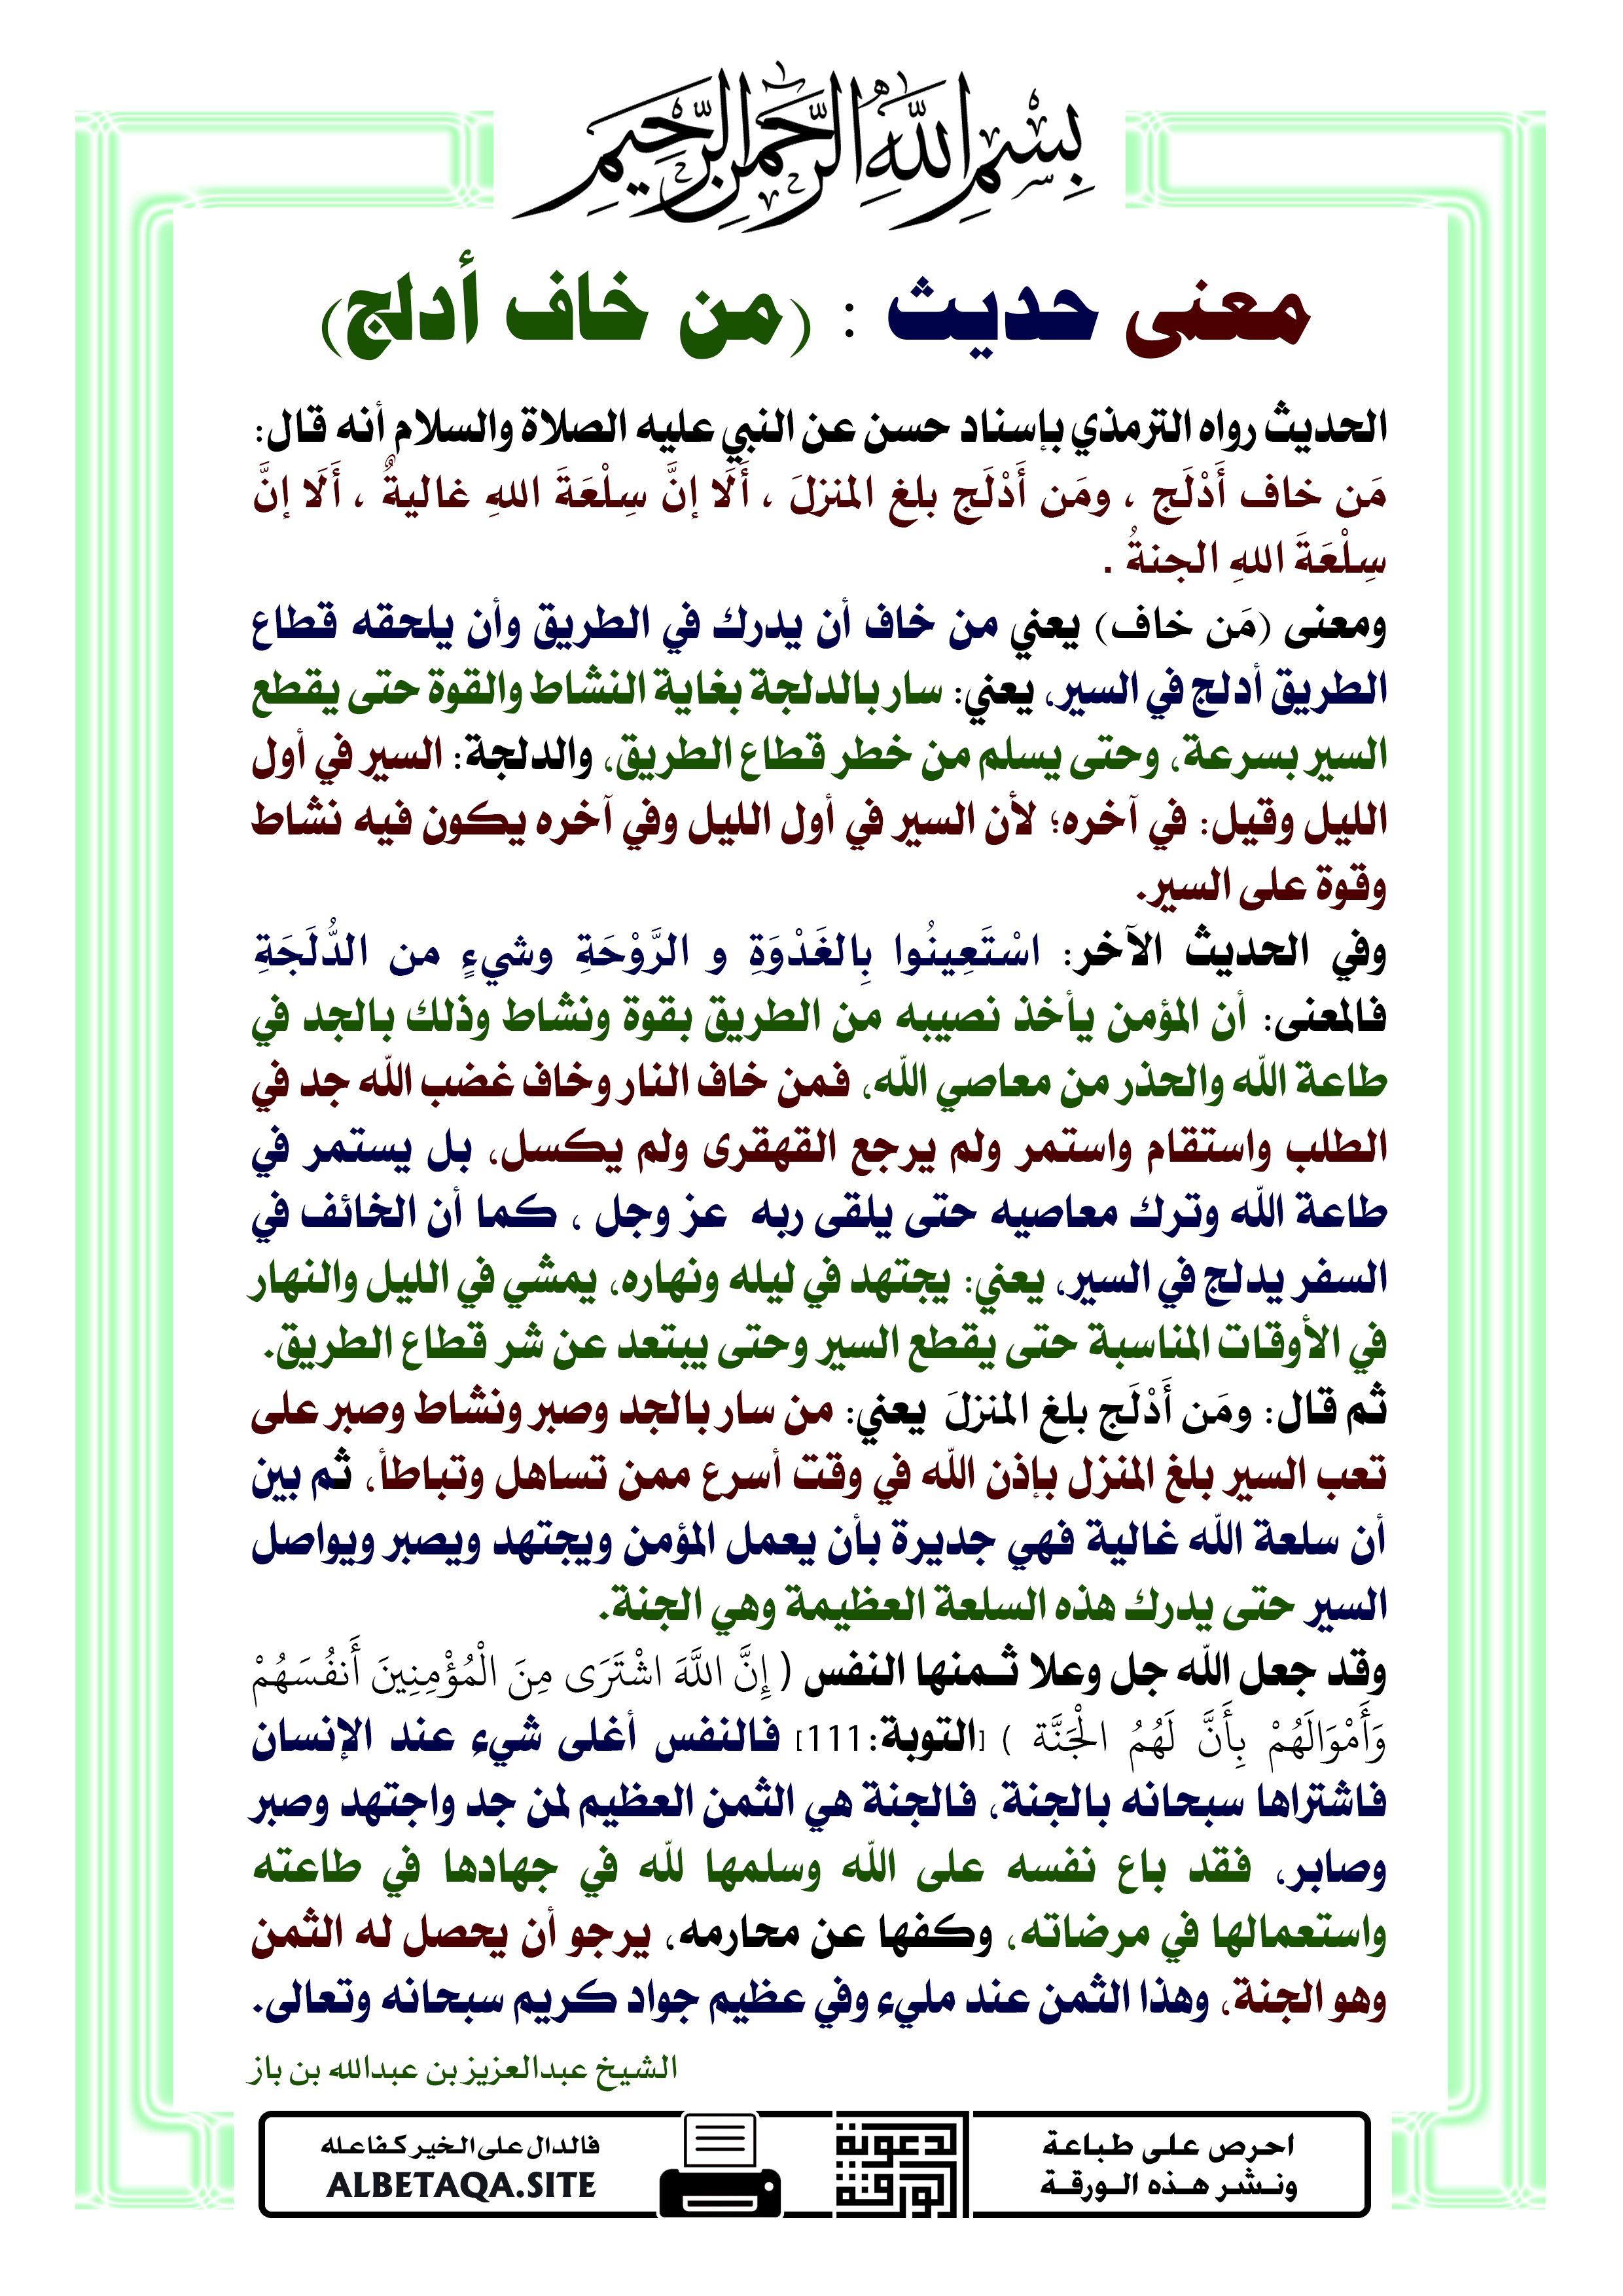 بِسْمِ اللَّهِ الرَّحْمَٰنِ الرَّحِيمِ
معنى حديث : (من خاف أدلج)
الحديث رواه الترمذي بإسناد حسن عن النبي عليه الصلاة والسلام أنه قال:
مَن خاف أَدْلَج ، ومَن أَدْلَج بلغ المنزلَ ، أَلَا إنَّ سِلْعَةَ اللهِ غاليةٌ ، أَلَا إنَّ
سِلْعَةَ اللهِ الجنةُ .
ومعنى (مَن خاف) يعني من خاف أن يدرك في الطريق وأن يلحقه قطاع
الطريق أدلج في السير، يعني: سار بالدلجة بغاية النشاط والقوة حتى يقطع
السير بسرعة، وحتى يسلم من خطر قطاع الطريق، والدلجة: السير في أول
الليل وقيل: في آخره؛ لأن السير في أول الليل وفي آخره يكون فيه نشاط
وقوة على السير.
وفي الحديث الآخر: اسْتَعِينُوا بِالغَدْوَةِ و الرَّوْحَةِ وشيءٍ من الدُّلَجَةِ
فالمعنى: أن المؤمن يأخذ نصيبه من الطريق بقوة ونشاط وذلك بالجد في
طاعة الله والحذر من معاصي الله، فمن خاف النار وخاف غضب الله جد في
الطلب واستقام واستمر ولم يرجع القهقرى ولم يكسل، بل يستمر في
طاعة الله وترك معاصيه حتى يلقى ربه عز وجل ، كما أن الخائف في
السفر يدلج في السير، يعني: يجتهد في ليله ونهاره، يمشي في الليل والنهار
في الأوقات المناسبة حتى يقطع السير وحتى يبتعد عن شر قطاع الطريق.
ثم قال: ومَن أَدْلَج بلغ المنزلَ يعني: من سار بالجد وصبر ونشاط وصبر على
تعب السير بلغ المنزل بإذن الله في وقت أسرع ممن تساهل وتباطأ، ثم بين
أن سلعة الله غالية فهي جديرة بأن يعمل المؤمن ويجتهد ويصبر ويواصل
السير حتى يدرك هذه السلعة العظيمة وهي الجنة.
وقد جعل الله جل وعلا ثـمنها النفس ( إِنَّ اللَّهَ اشْتَرَى مِنَ الْمُؤْمِنِينَ أَنفُسَهُمْ
وَأَمْوَالَهُمْ بِأَنَّ لَهُمُ الْجَنَّة ) [التوبة:111] فالنفس أغلى شيء عند الإنسان
فاشتراها سبحانه بالجنة، فالجنة هي الثمن العظيم لمن جد واجتهد وصبر
وصابر، فقد باع نفسه على الله وسلمها لله في جهادها في طاعته
واستعمالها في مرضاته، وكفها عن محارمه، يرجو أن يحصل له الثمن
وهو الجنة، وهذا الثمن عند مليء وفي عظيم جواد كريم سبحانه وتعالى.
الشيخ عبدالعزيز بن عبدالله بن باز
احرص على طباعة
ونـشـر هـذه الـورقـة
الورقة
الدعوية
فالدال على الخير كفاعله
ALBETAQA.SITE